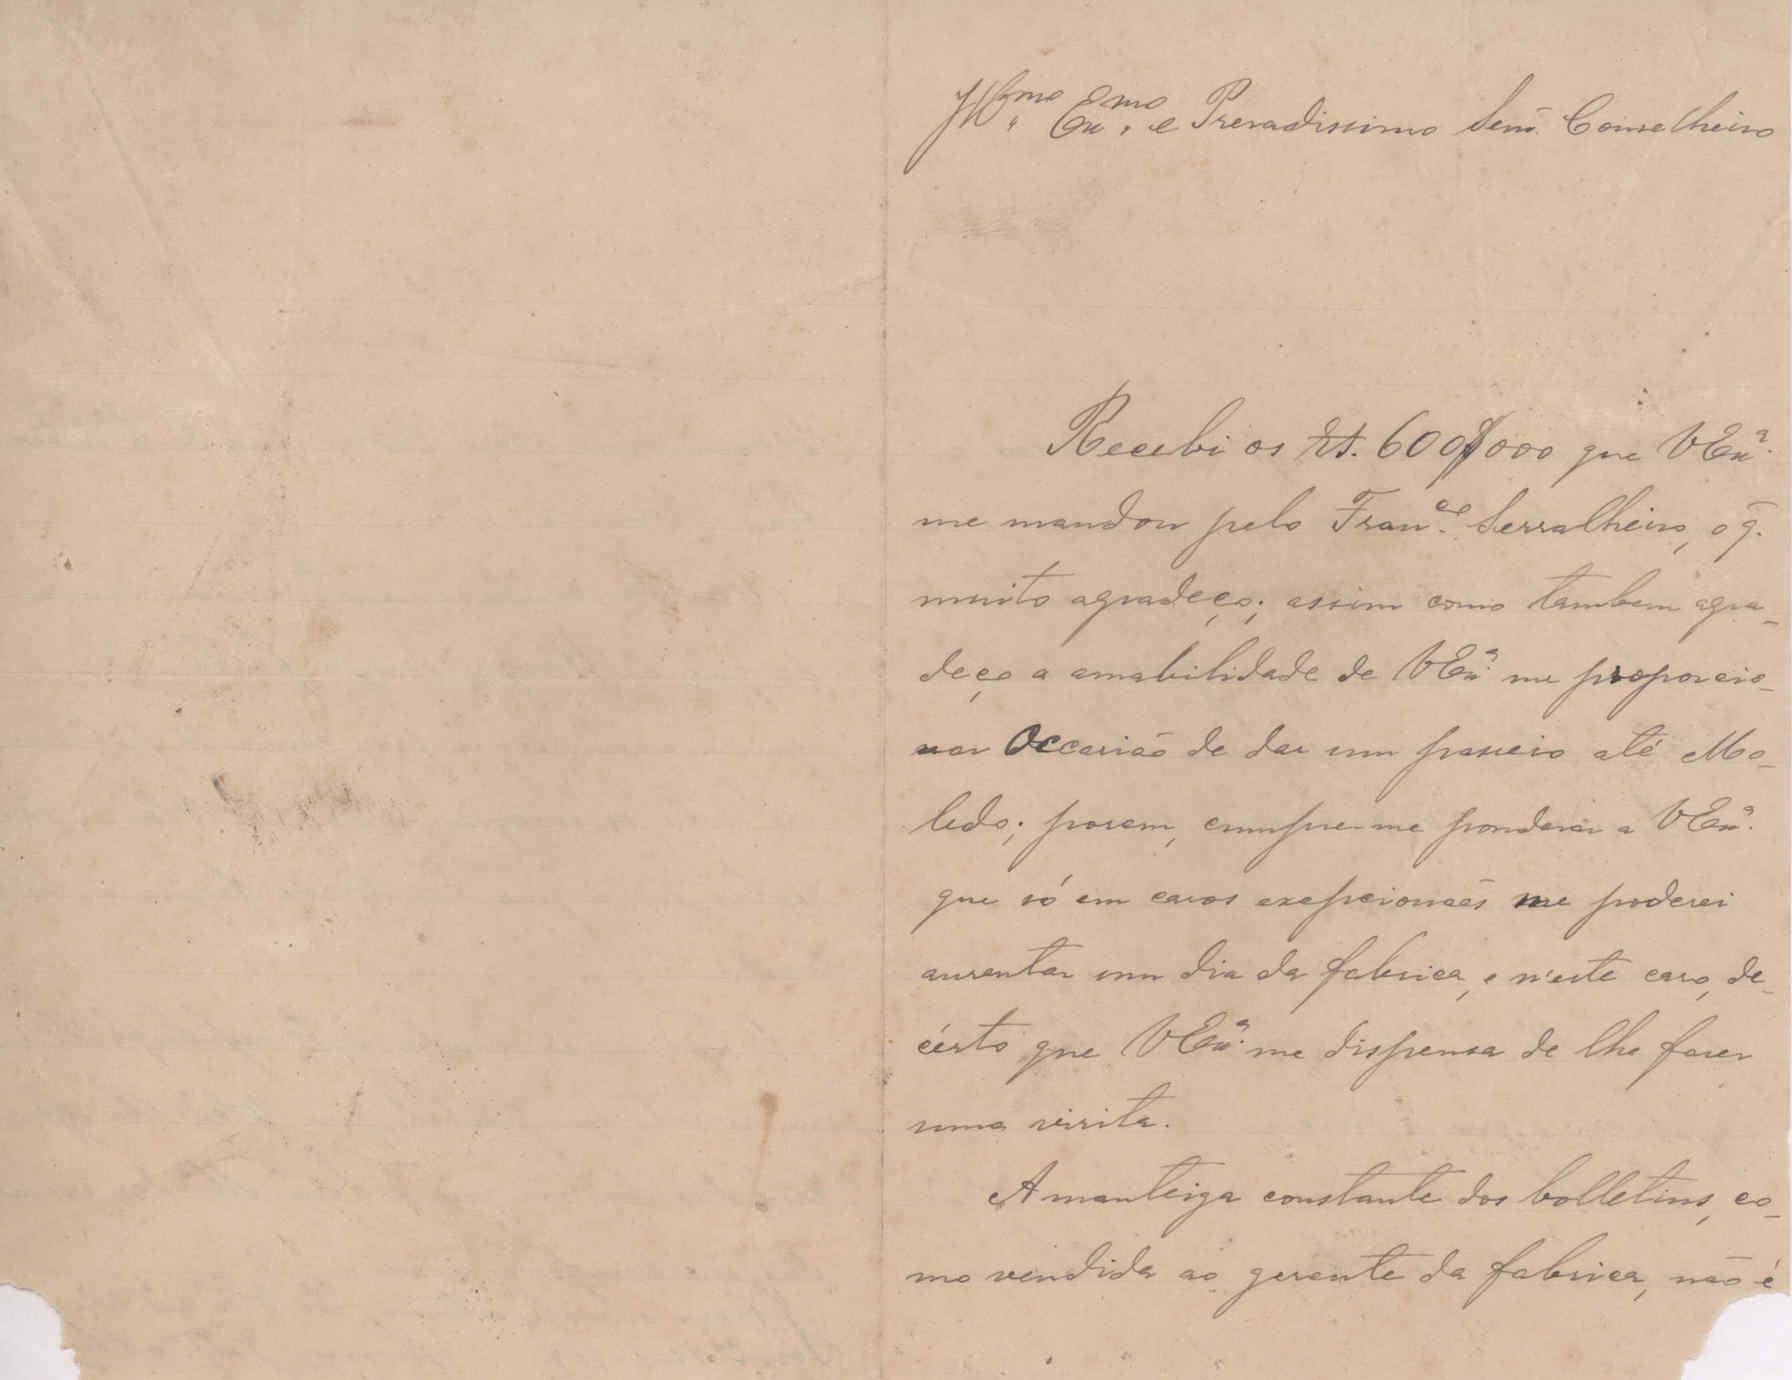 Illmo. Exmo. e Presadissimo Senr. Conselheiro
Recebi os rs. 600$000 que VExª.
me mandou pelo Franco. Serralheiro, o q.
muito agradeço; assim como tambem agra-
deço a amabilidade de VExª. me proporcio-
nar Occasião de dar um passeio até Mo-
ledo; porem, cumpre-me ponderar a VExª.
que só em casos exepcionaes me poderei
ausentar um dia da fabrica, e n'este caso, de-
cérto que VExª. me dispensa de lhe fazer
uma visita.
A manteiga constante dos bolletins, co-
mo vendida ao gerente da fabrica, não é